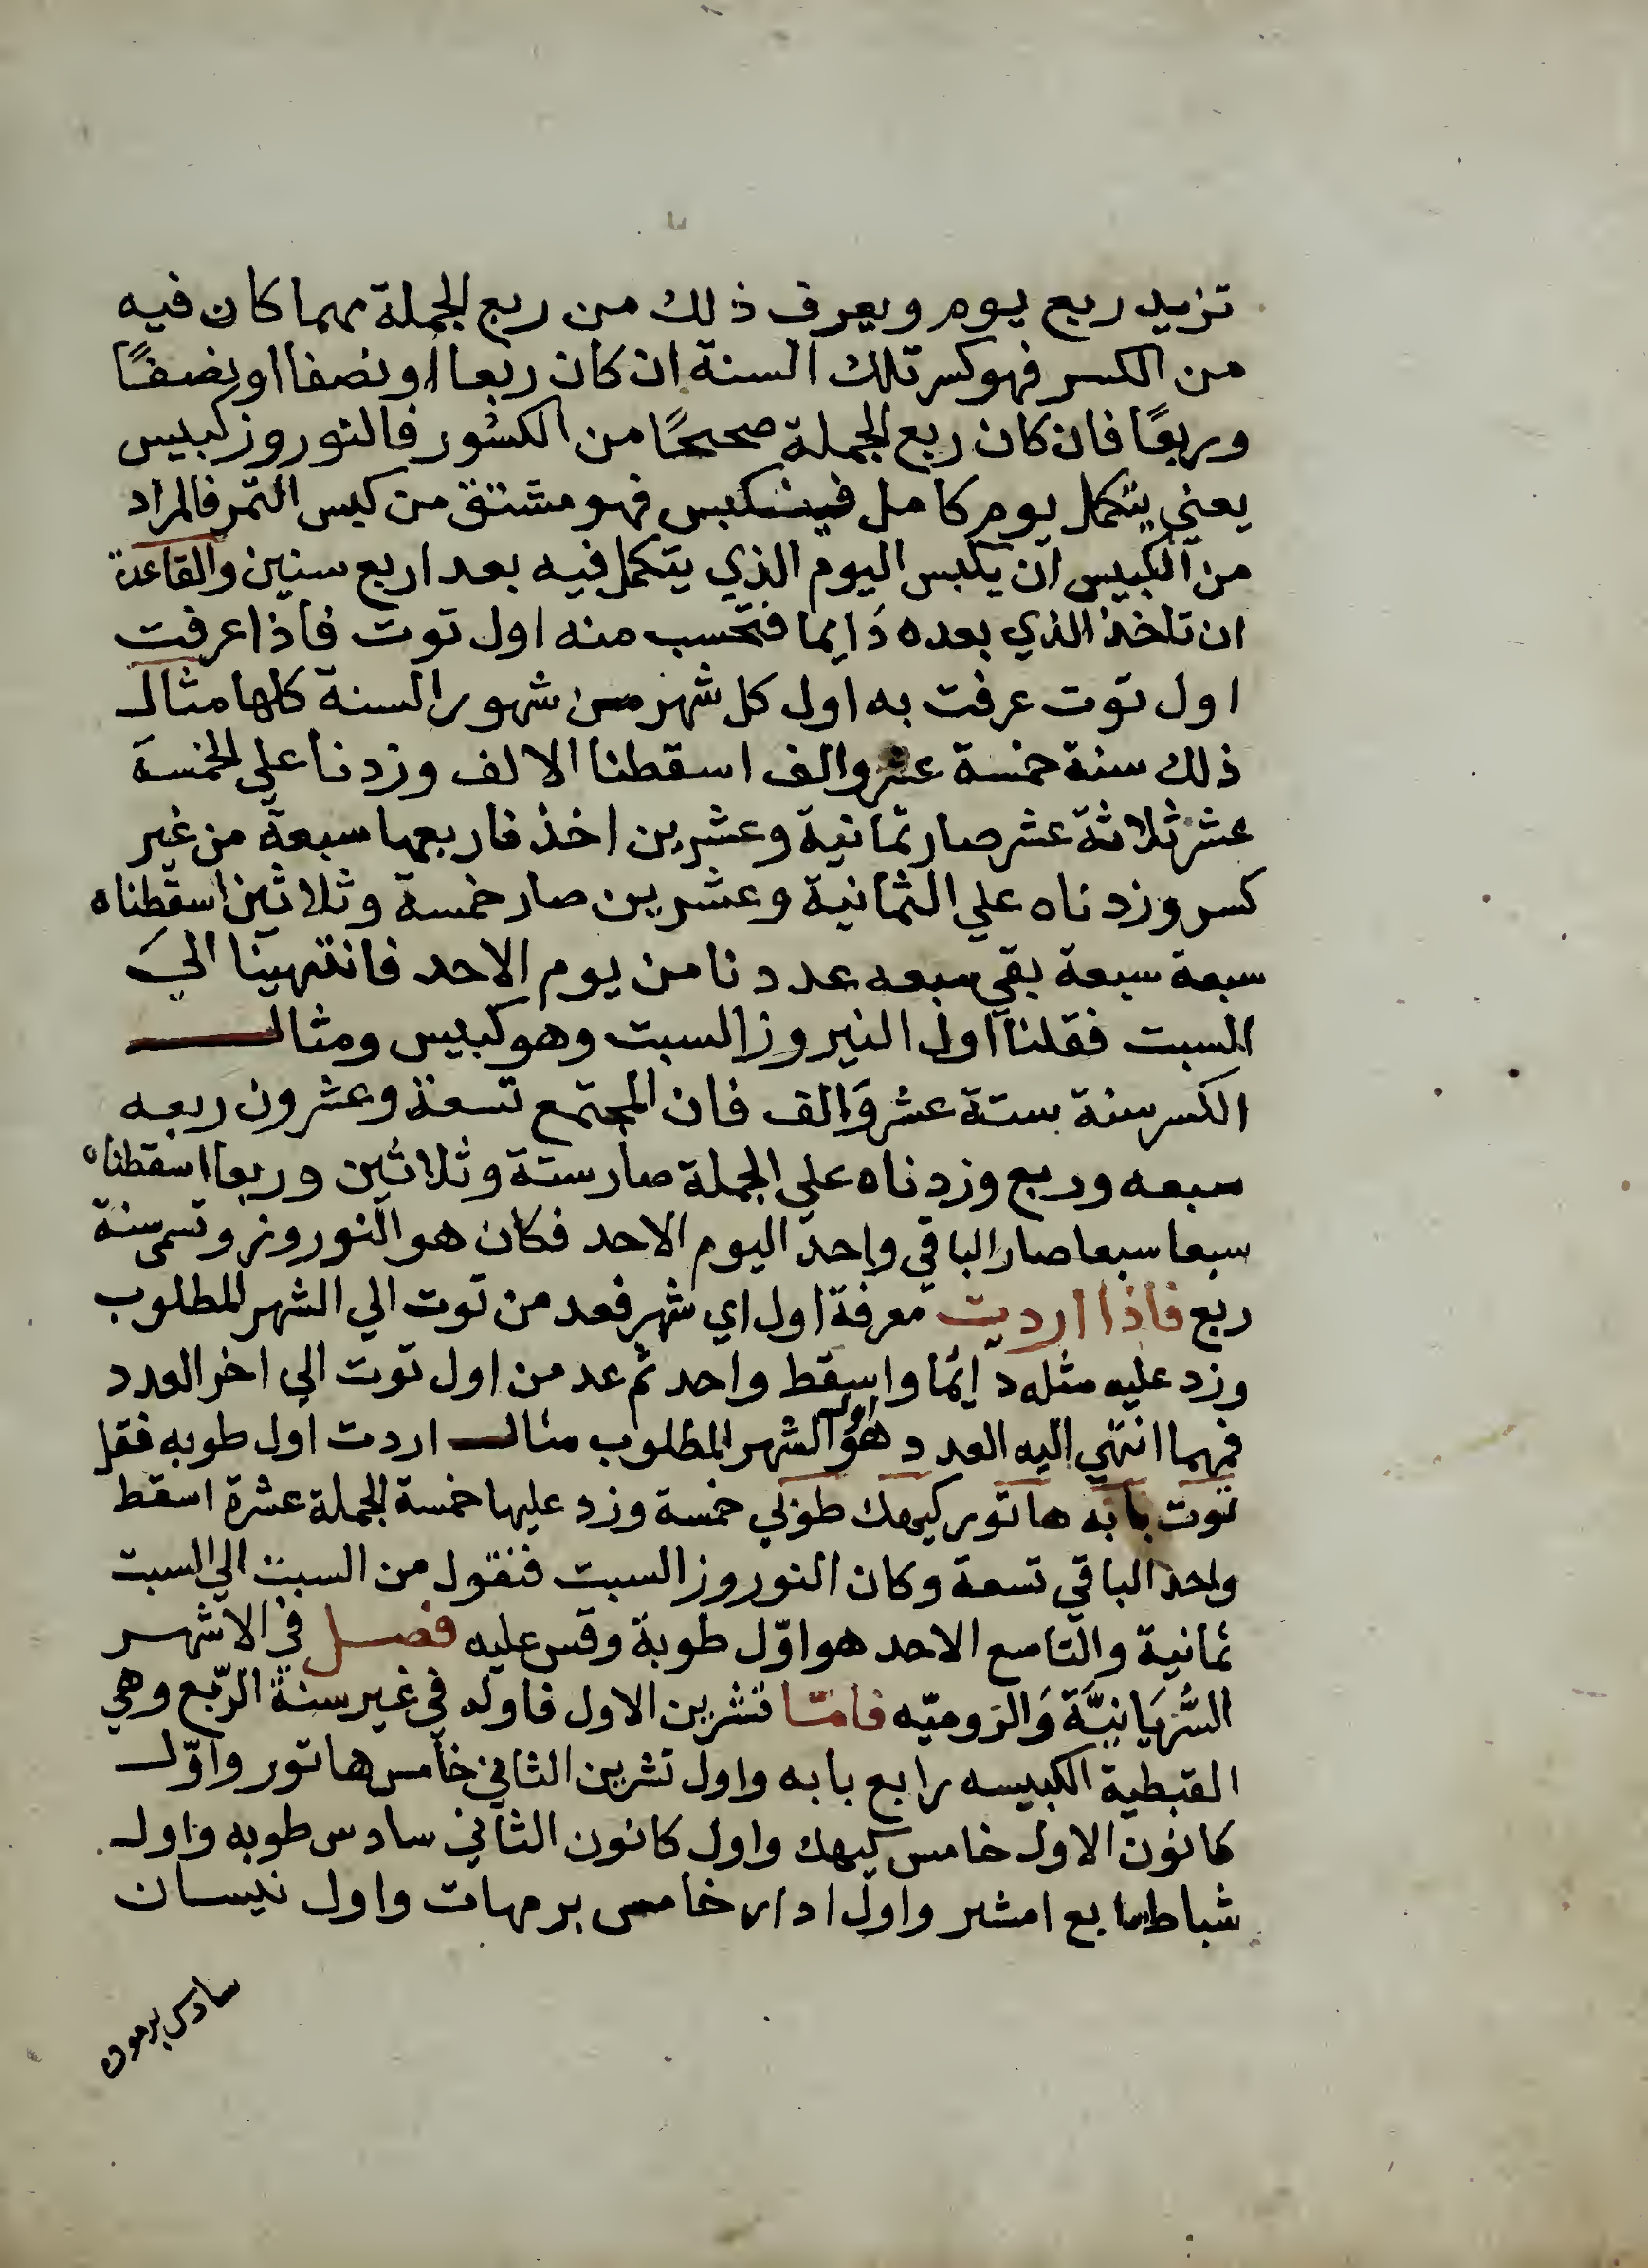 تزيد ربع يوم ويعرف ذلك من ربع الجملة مهما كان فيه
من الكسر فهو كسر تلك السنة ان كان ربعا او نصفا او نصفًا
وربعًا فان كان ربع الجملة صحيحًا من الكسور فالنوروز كبيس
يعني يتكمل يوم كامل فينكبس فهو مشتق من كبس التمر فالمراد
من الكبيس ان يكبس اليوم الذي يتكمل فيه بعد اربع سنين والقاعدة
ان تاخذ الذي بعده دَايما فتحسب منه اول توت فاذا عرفت
اول توت عرفت به اول كل شهر من شهور السنة كلها مثال
ذلك سنة خمسة عشر والف اسقطنا الالف وزدنا علي الخمسة
عشر ثلاثة عشر صار ثمانية وعشرين اخذ فاربعها سبعة من غير
كسر وزدناه علي الثمانية وعشرين صار خمسة وثلاثين اسقطناه
سبعة سبعة بقي سبعه عددنا من يوم الاحد فانتهينا الي
السبت فقلنا اول النيروز السبت وهو كبيس ومثال
الكسر سنة ستة عشر وَالف فان المجتمع تسعة وعشرون ربعه
سبعه وربع وزدناه علي الجملة صار ستة وثلاثين وربعا اسقطناه
سبعا سبعا صار الباقي واحد اليوم الاحد فكان هو النوروز وتسمى سنة
ربع فاذا اردت معرفة اول اي شهر فعد من توت الي الشهر المطلوب
وزد عليه مثله دائما واسقط واحد ثم عد من اول توت الي اخر العدد
فمهما انتهي اليه العدد هو اول الشهر المطلوب مثال اردت اول طوبه فقل
توت بابه هاتور كيهك طوبي خمسة وزد عليها خمسة الجملة عشرة اسقط
واحد الباقي تسعة وكان النوروز السبت فنقول من السبت الي السبت
ثمانية والتاسع الاحد هو اوّل طوبة وقس عليه فصل في الاشهر
السُّرْيَانِيَّةَ وَالرّوميّه فامّا تشرين الاول فاوله في غير سنة الرّبع وهي
القبطية الكبيسه رابع بابه واول تشرين الثاني خامس هاتور واوّل
كانون الاول خامس كيهك واول كانون الثاني سادس طوبه واول
شباط سابع امشير واول ادار خامس برمهات واول نيسان
سادس برموده